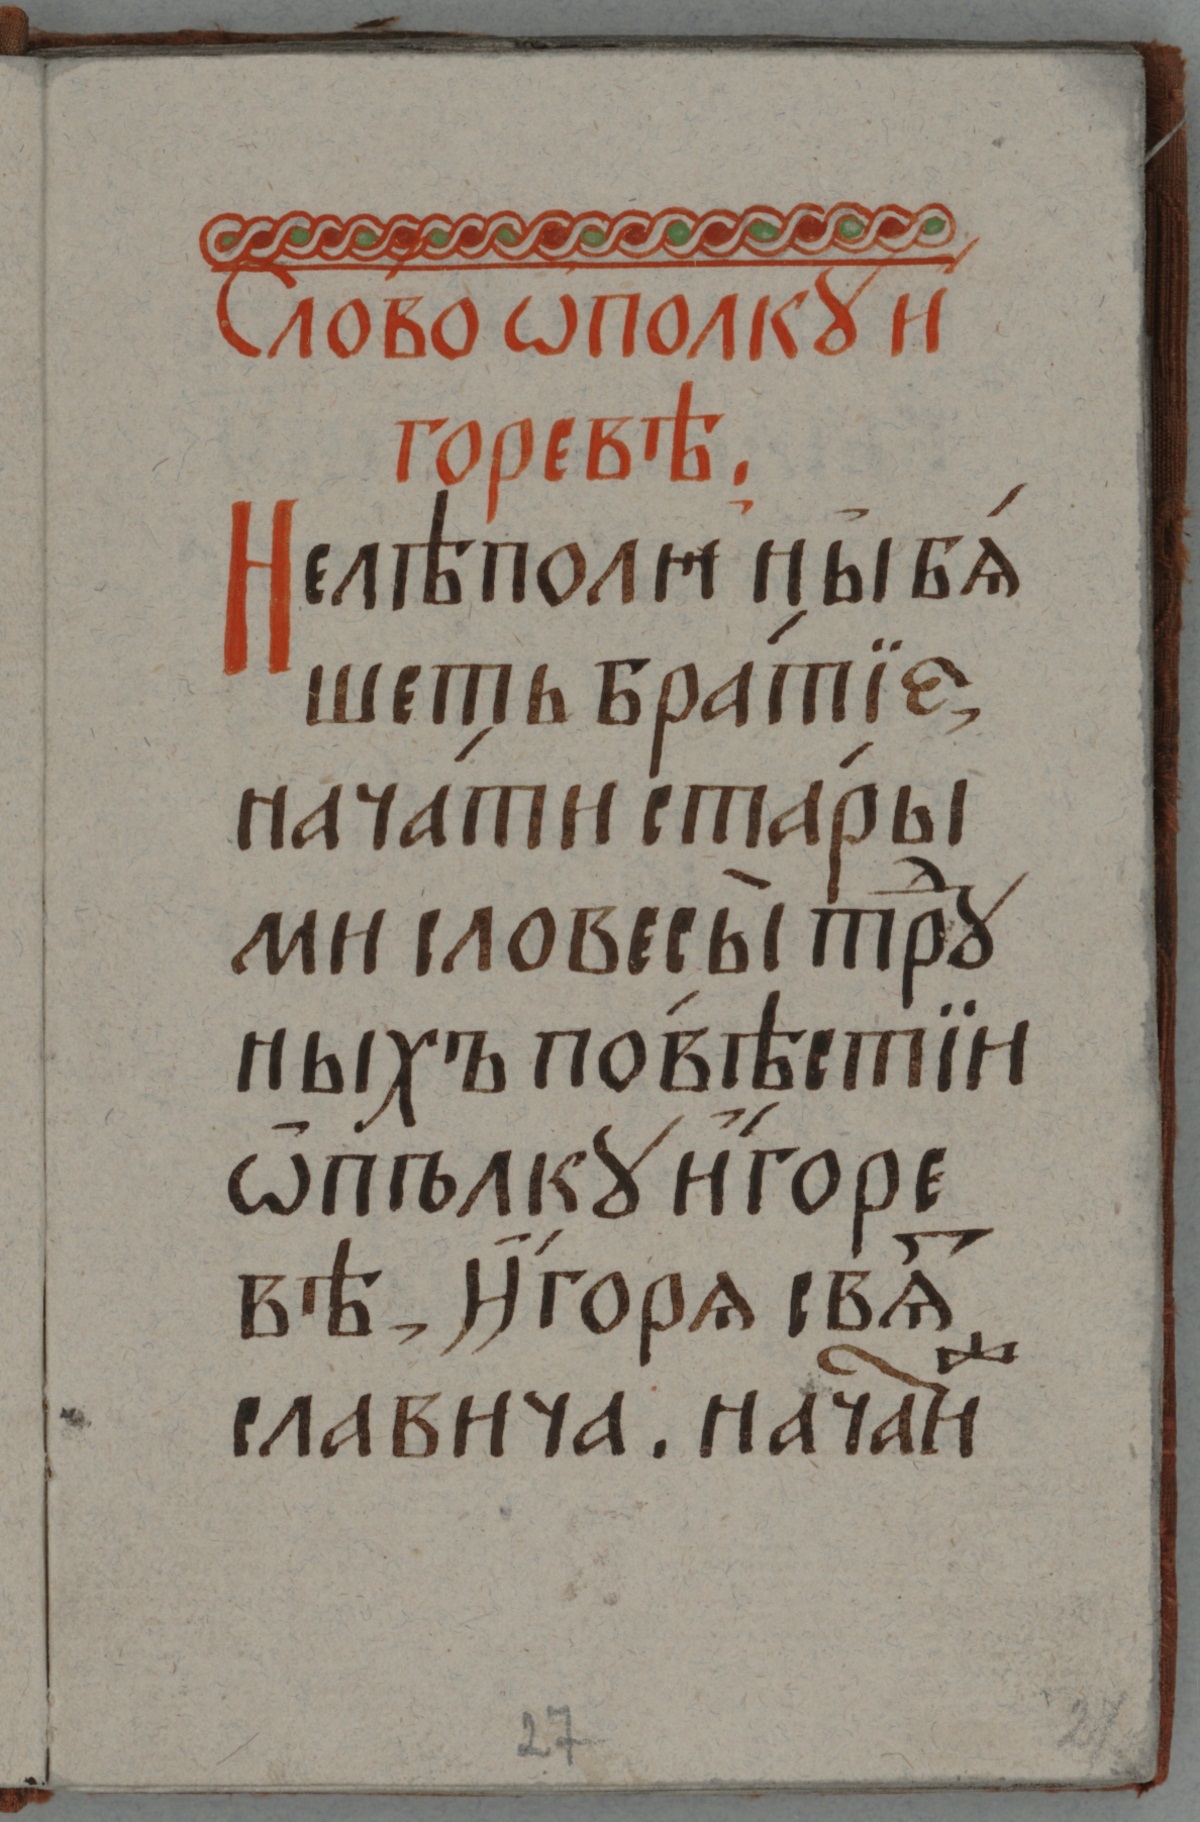 Сло́во ѡполкꙋ и
горевѣ.
Нелѣполи ны̄ бѧ́
шеть бра́тїє,
нача́ти ста́ры
ми словесы̀ трⷣꙋ
ныхъ по́вѣстїи
ѡ̄пълкꙋ и҆́горе
вѣ, И҆́горѧ свѧⷮ
славича. нача́тиⷤ
27
27